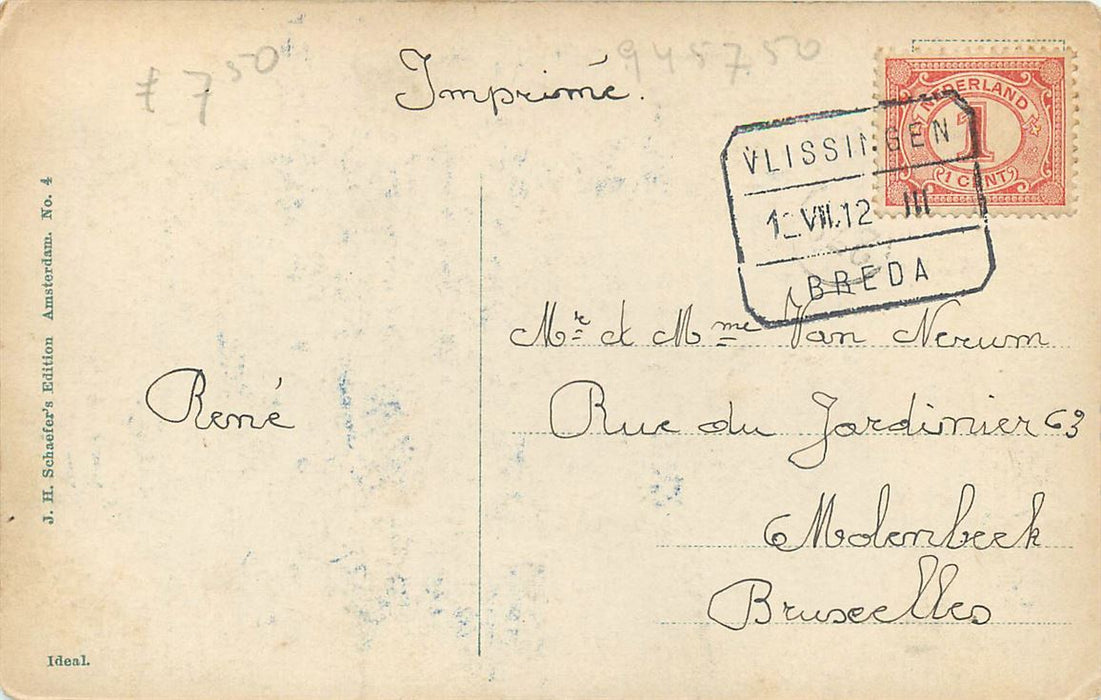 £ 7 50
Imprimé.
945750
NEDERLAND
1
1 CENT
VLISSINGEN
VIII.12 III
BREDA
J. H. Schaefer's Edition Amsterdam. No. 4
René
Mr & Mme Van Nerum
Rue du Jardinier 63
Molenbeek
Bruxelles
Ideal.